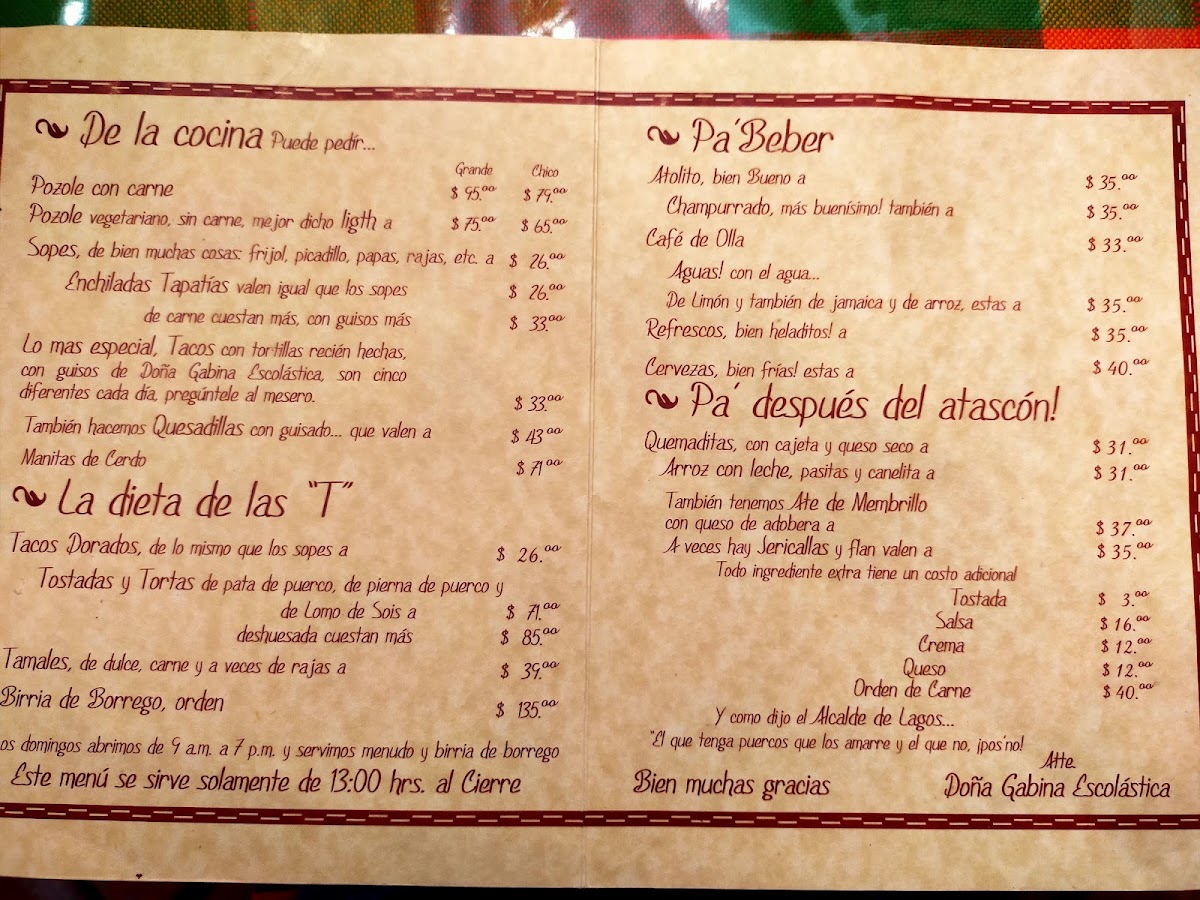 De la cocina Puede pedir...
Grande Chico
Pozole con carne $ 95.00 $ 79.00
Pozole vegetariano, sin carne, mejor dicho ligth a $ 75.00 $ 65.00
Sopes, de bien muchas cosas: frijol, picadillo, papas, rajas, etc. a $ 26.00
Enchiladas Tapatías valen igual que los sopes $ 26.00
de carne cuestan más, con guisos más $ 33.00
Lo mas especial, Tacos con tortillas recién hechas,
con guisos de Doña Gabina Escolástica, son cinco
diferentes cada día, pregúntele al mesero. $ 33.00
También hacemos Quesadillas con guisado... que valen a $ 43.00
Manitas de Cerdo $ 71.00
La dieta de las "T"
Tacos Dorados, de lo mismo que los sopes a $ 26.00
Tostadas y Tortas de pata de puerco, de pierna de puerco y
de Lomo de Sois a $ 71.00
deshuesada cuestan más $ 85.00
Tamales, de dulce, carne y a veces de rajas a $ 39.00
Birria de Borrego, orden $ 135.00
os domingos abrimos de 9 a.m. a 7 p.m. y servimos menudo y birria de borrego
Este menú se sirve solamente de 13:00 hrs. al Cierre
Pa´Beber
Atolito, bien Bueno a $ 35.00
Champurrado, más buenísimo! también a $ 35.00
Café de Olla $ 33.00
Aguas! con el agua...
De Limón y también de jamaica y de arroz, estas a $ 35.00
Refrescos, bien heladitos! a $ 35.00
Cervezas, bien frías! estas a $ 40.00
Pa´ después del atascón!
Quemaditas, con cajeta y queso seco a $ 31.00
Arroz con leche, pasitas y canelita a $ 31.00
También tenemos Ate de Membrillo
con queso de adobera a $ 37.00
A veces hay Jericallas y flan valen a $ 35.00
Todo ingrediente extra tiene un costo adicional
Tostada $ 3.00
Salsa $ 16.00
Crema $ 12.00
Queso $ 12.00
Orden de Carne $ 40.00
Y como dijo el Alcalde de Lagos...
"El que tenga puercos que los amarre y el que no, ¡pos´no!
Atte.
Bien muchas gracias Doña Gabina Escolástica